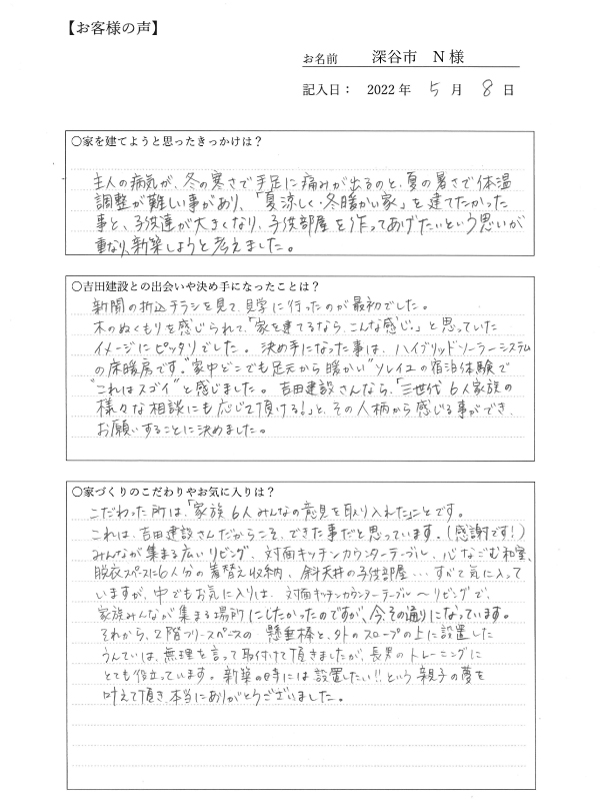 【お客様の声】
お名前　深谷市　N 様
記入日： 2022 年 5 月 8 日
○家を建てようと思ったきっかけは？
主人の病気が、冬の寒さで手足に痛みが出るのと、夏の暑さで体温
調整が難しい事があり、「夏涼しく・冬暖かい家」を建てたかった
事と、子供達が大きくなり、子供部屋を作ってあげたいという思いが
重なり、新築しようと考えました。
○吉田建設との出会いや決め手になったことは？
新聞の折込チラシを見て、見学に行ったのが最初でした。
木のぬくもりを感じられて、「家を建てるなら、こんな感じ。」と思っていた
イメージにピッタリでした。決め手になった事は、ハイブリッドソーラーシステム
の床暖房です。"家中どこでも足元から暖かい"ソレイユの宿泊体験で
"これはスゴイ"と感じました。吉田建設さんなら、「三世代6人家族の
様々な相談にも応じて頂ける！」と、その人柄から感じる事ができ、
お願いすることに決めました。
○家づくりのこだわりやお気に入りは？
こだわった所は、「家族6人みんなの意見を取り入れた」ことです。
これは、吉田建設さんだからこそ、できた事だと思っています。（感謝です！）
みんなが集まる広いリビング、対面キッチンカウンターテーブル、心なごむ和室、
脱衣スペースに6人分の着替え収納、斜天井の子供部屋…すべて気に入って
いますが、中でもお気に入りは、対面キッチンカウンターテーブル〜リビングで、
家族みんなが集まる場所にしたかったのですが、今、その通りになっています。
それから、2階フリースペースの 懸垂棒と、外のスロープの上に設置した
うんていは、無理を言って取付けて頂きましたが、長男のトレーニングに
とても役立っています。新築の時には設置したい!!という親子の夢を
叶えて頂き、本当にありがとうございました。